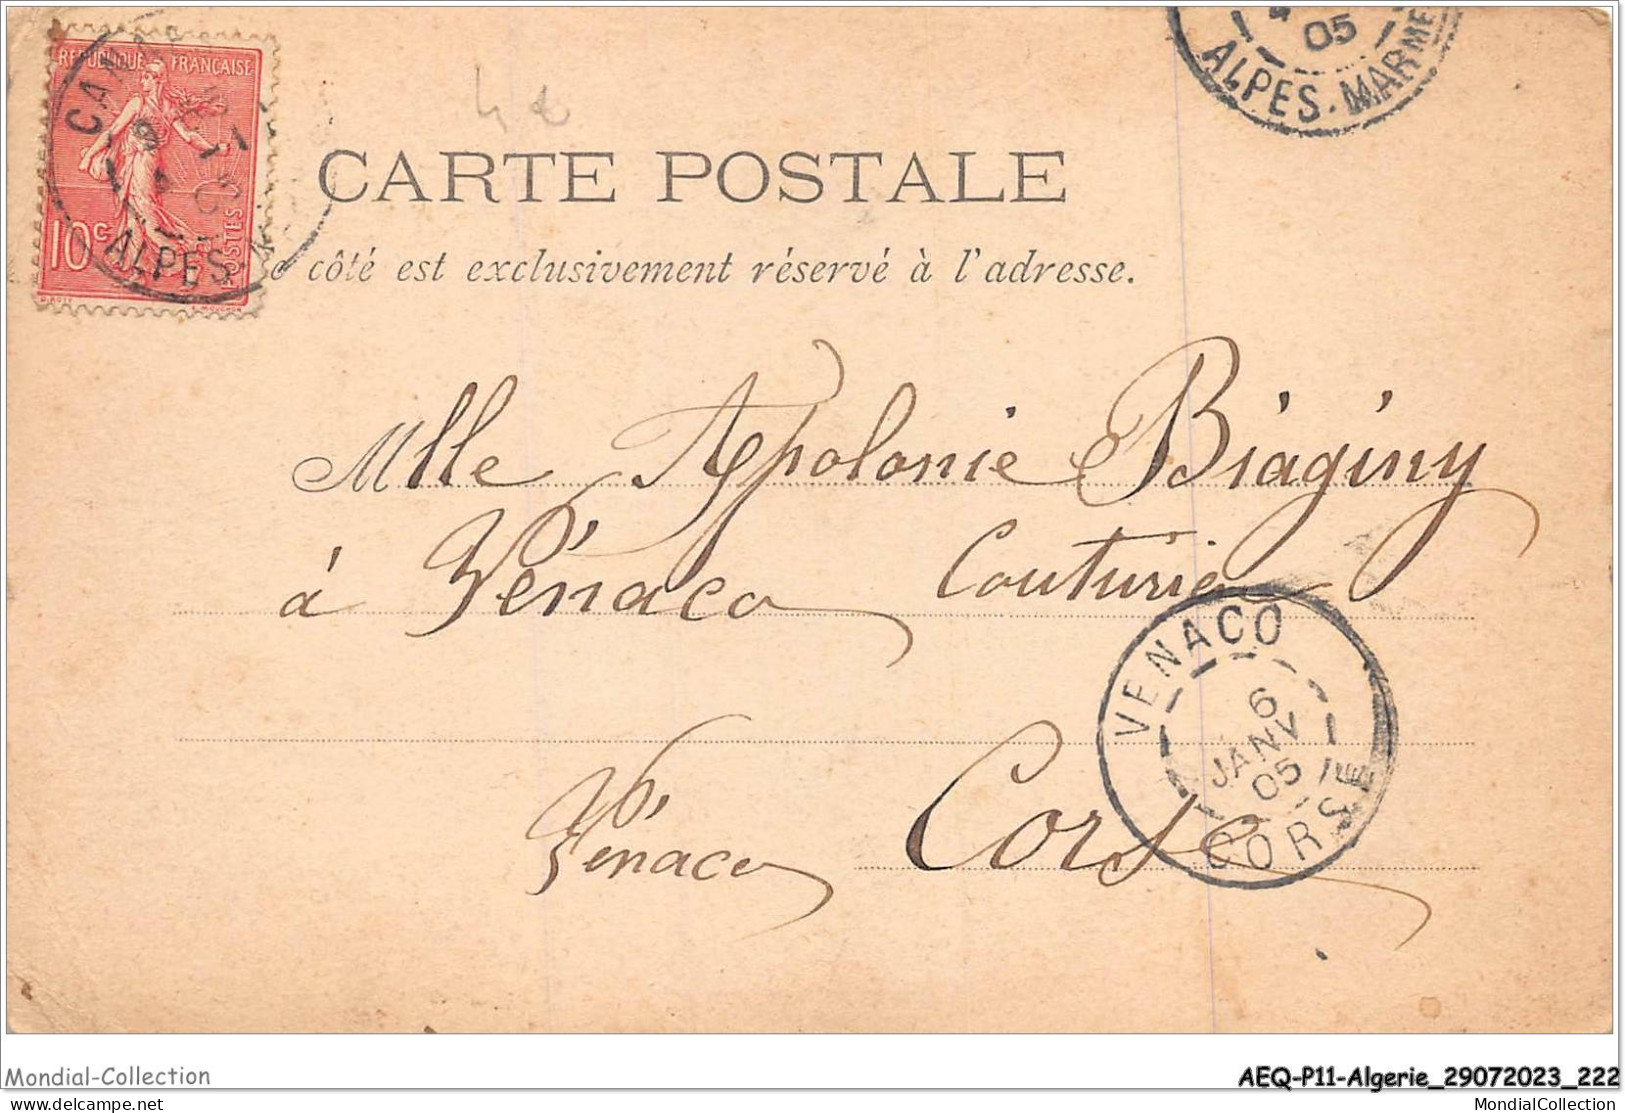 REPUBLIQUE FRANÇAISE
10c
POSTES
ALPES
05
ALPES-MARMES
CARTE POSTALE
côté est exclusivement réservé à l'adresse.
Mlle Apolonie Biaginy
à Vénaco Couturie
VENACO
6
JANV
05
CORSE
Vénaco Corse
Mondial-Collection
AEQ-P11-Algerie_29072023_222
www.delcampe.net
MondialCollection